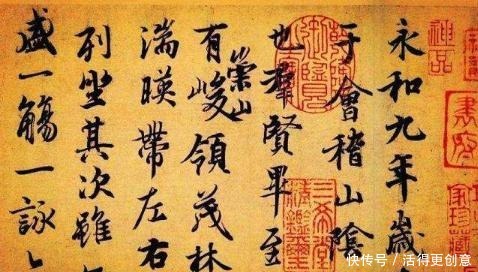 神品
永和九年歲
于會稽山陰
也羣賢畢至
有崇山峻領茂林
湍暎帶左右
列坐其次雖
盛一觴一詠
快传号 / 活得更创意